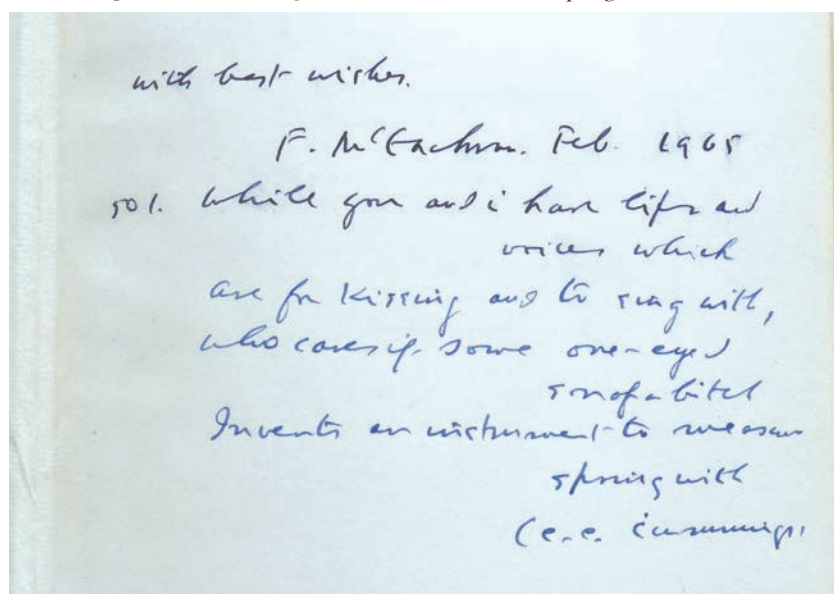 with best wishes.
F. McEachran. Feb. 1965
501. while you and i have lips and
voices which
are for kissing and to sing with,
who cares if some one-eyed
sonofabitch
Invents an instrument to measure
spring with
(e.e. cummings.